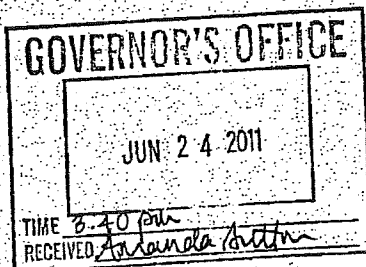 GOVERNOR'S OFFICE
JUN 24 2011
TIME 3:40 pm
RECEIVED Amanda Sutton